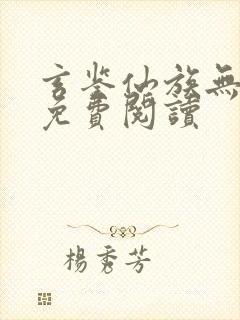 玄鉴仙族無
免費閱讀
楊秀芳